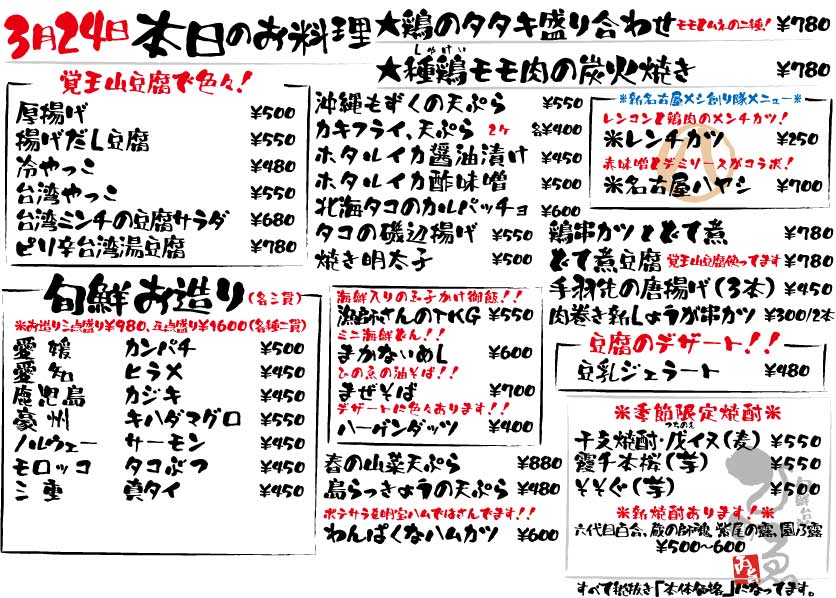 3月24日 本日のお料理
★鶏のタタキ盛り合わせ モモとムネの二種! ¥780
しゃけい
★種鶏モモ肉の炭火焼き ¥780
覚王山豆腐で色々!
厚揚げ ¥500
揚げだし豆腐 ¥550
冷やっこ ¥480
台湾やっこ ¥550
台湾ミンチの豆腐サラダ ¥680
ピリ辛台湾湯豆腐 ¥780
旬鮮お造り(各三貫)
※お造り三点盛り¥980、五点盛り¥1600(各種二貫)
愛媛 カンパチ ¥500
愛知 ヒラメ ¥450
鹿児島 カジキ ¥450
豪州 キハダマグロ ¥550
ノルウェー サーモン ¥450
モロッコ タコぶつ ¥450
三重 真タイ ¥450
沖縄もずくの天ぷら ¥550
カキフライ、天ぷら 2ケ 各¥400
ホタルイカ醤油漬け ¥450
ホタルイカ酢味噌 ¥500
北海タコのカルパッチョ ¥600
タコの磯辺揚げ ¥550
焼き明太子 ¥500
海鮮入りの玉子かけ御飯!!
漁師さんのTKG ¥550
ミニ海鮮どん!!
まかないめし ¥600
ひの魚の油そば!!
まぜそば ¥700
デザートに色々あります!!
ハーゲンダッツ ¥400
春の山菜天ぷら ¥880
島らっきょうの天ぷら ¥480
ポテサラを明宝ハムではさんでます!!
わんぱくなハムカツ ¥600
※新名古屋メシ創り隊メニュー※
レンコンと鶏肉のメンチカツ!
※レンチカツ ¥250
赤味噌とデミソースがコラボ!
※名古屋ハヤシ ¥700
鶏串カツとどて煮 ¥780
どて煮豆腐 覚王山豆腐使ってます ¥780
手羽先の唐揚げ(3本) ¥450
肉巻き新しょうが串カツ ¥300/2本
豆腐のデザート!!
豆乳ジェラート ¥480
※季節限定焼酎※
つちのえ
干支焼酎・戊イヌ(麦) ¥550
霞千本桜(芋) ¥550
そそぐ(芋) ¥500
※新焼酎あります!※
六代目百合、蔵の師魂、紫尾の露、園乃露
¥500~600
すべて税抜き「本体価格」になってます。